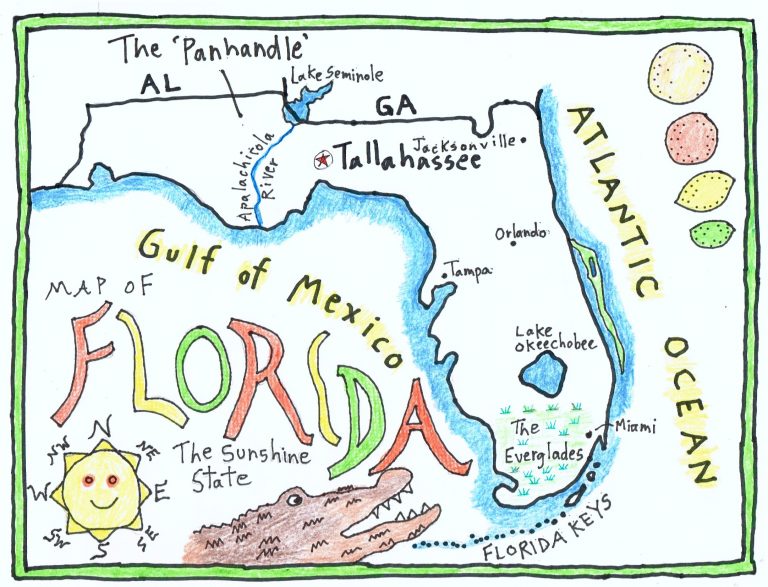 The 'Panhandle'
AL
Lake Seminole
GA
Apalachicola
River
Tallahassee
Jacksonville
ATLANTIC
OCEAN
Orlando
Gulf of Mexico
Tampa
MAP OF
FLORIDA
The Sunshine
State
Lake
Okeechobee
The
Everglades
Miami
FLORIDA KEYS
N
NE
E
SE
S
SW
W
NW